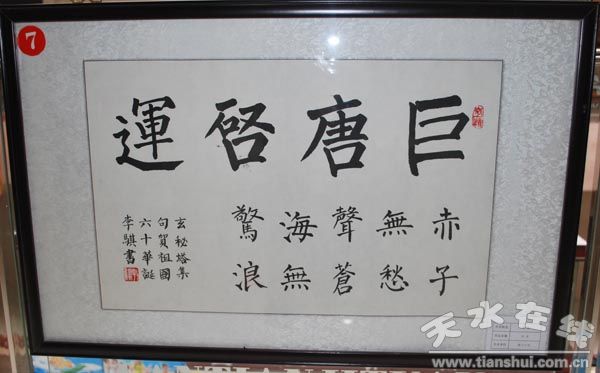 7
巨唐啓運
赤子
無愁
聲蒼
海無
驚浪
玄秘塔集
句賀祖國
六十華誕
李騏書
天水在线
www.tianshui.com.cn